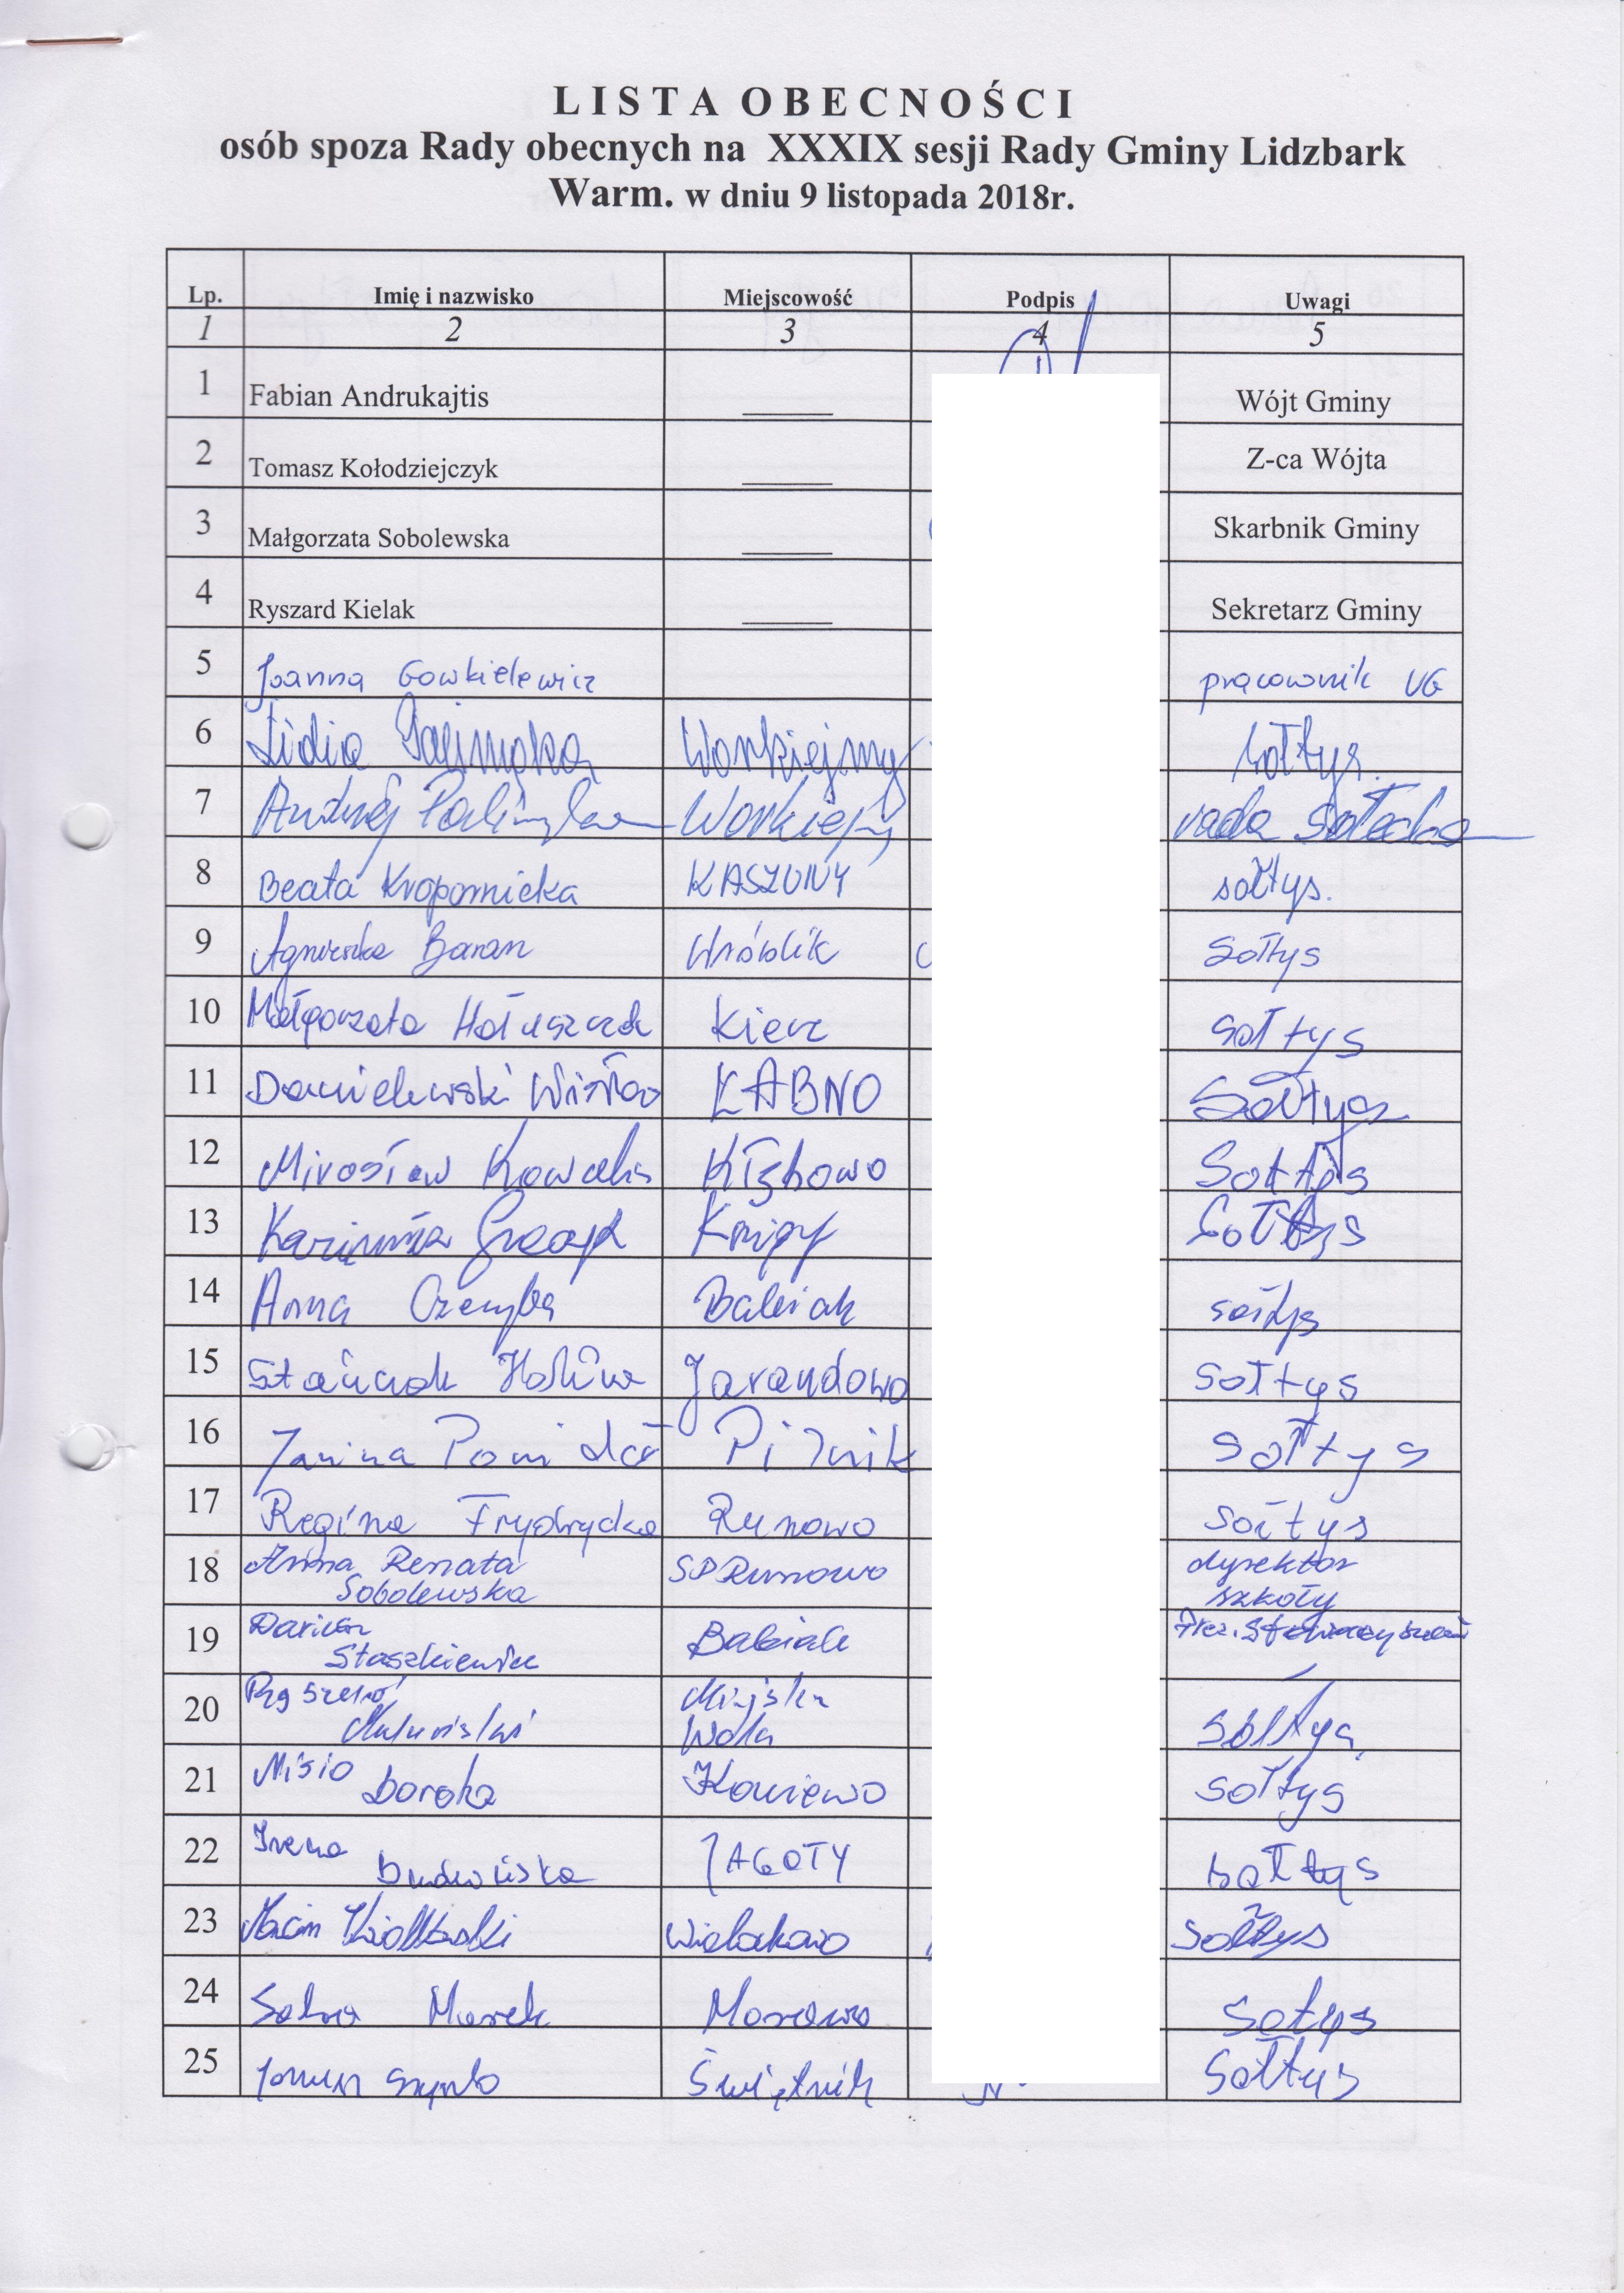 LISTA OBECNOŚCI
osób spoza Rady obecnych na XXXIX sesji Rady Gminy Lidzbark
Warm. w dniu 9 listopada 2018r.
Lp. Imię i nazwisko Miejscowość Podpis Uwagi
1 2 3 4 5
1 Fabian Andrukajtis Wójt Gminy
2 Tomasz Kołodziejczyk Z-ca Wójta
3 Małgorzata Sobolewska Skarbnik Gminy
4 Ryszard Kielak Sekretarz Gminy
5 Joanna Gowkielewicz pracownik UG
6 Lidia Workiejmy sołtys.
7 Andrzej rada sołecka
8 Beata Kropornicka KASZUNY sołtys.
9 Agnieszka Baran Wróblik Sołtys
10 Małgorzata Hałuszczak Kierz sołtys
11 Danielewski ŁABNO Sołtys
12 Mirosław Kłębowo Sołtys
13 Knipy Sołtys
14 Anna Babiak sołtys
15 Stańczak Jarandowo sołtys
16 Janina Pomidor Pilnik sołtys
17 Regina Frydrycka Runowo sołtys
18 Anna Renata SP Runowo dyrektor
Sobolewska szkoły
19 Babiak Prez. Stowarzyszeń
Staszkiewicz
20 Miejska
Wola sołtys
21 Misio Koniewo sołtys
Dorota
22 Irena JAGOTY sołtys
23 sołtys
24 Marek Morawa Sołtys
25 Świętnik Sołtys